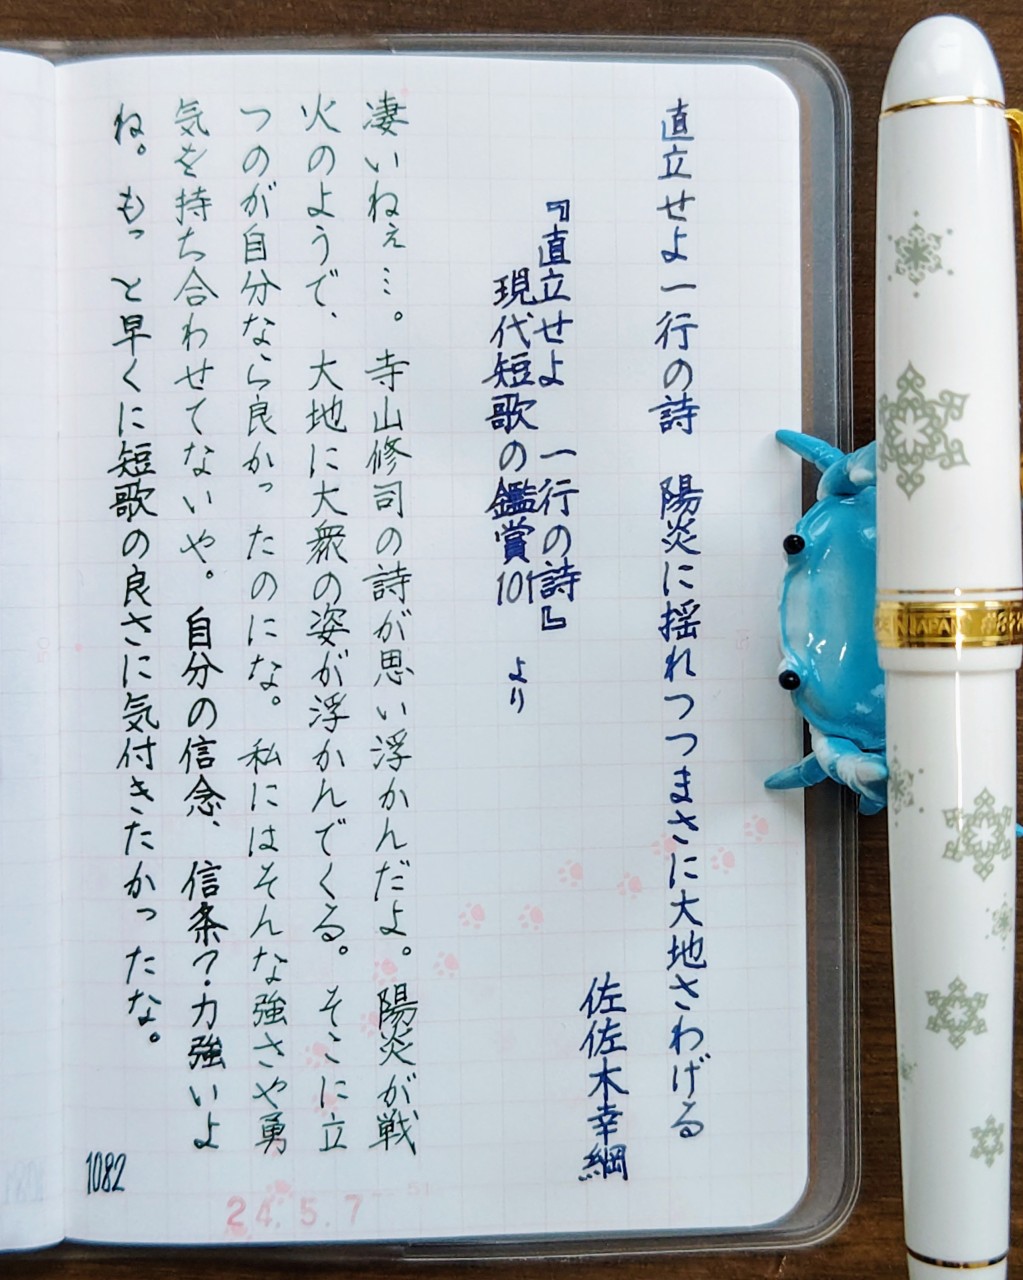 直立せよ一行の詩　陽炎に揺れつつまさに大地さわげる
佐佐木幸綱
『直立せよ　一行の詩』
現代短歌の鑑賞101　より
凄いねぇ…。寺山修司の詩が思い浮かんだよ。陽炎が戦
火のようで、大地に大衆の姿が浮かんでくる。そこに立
つのが自分なら良かったのにな。私にはそんな強さや勇
気を持ち合わせてないや。自分の信念、信条？力強いよ
ね。もっと早くに短歌の良さに気付きたかったな。
1082
24.5.7
IN JAPAN